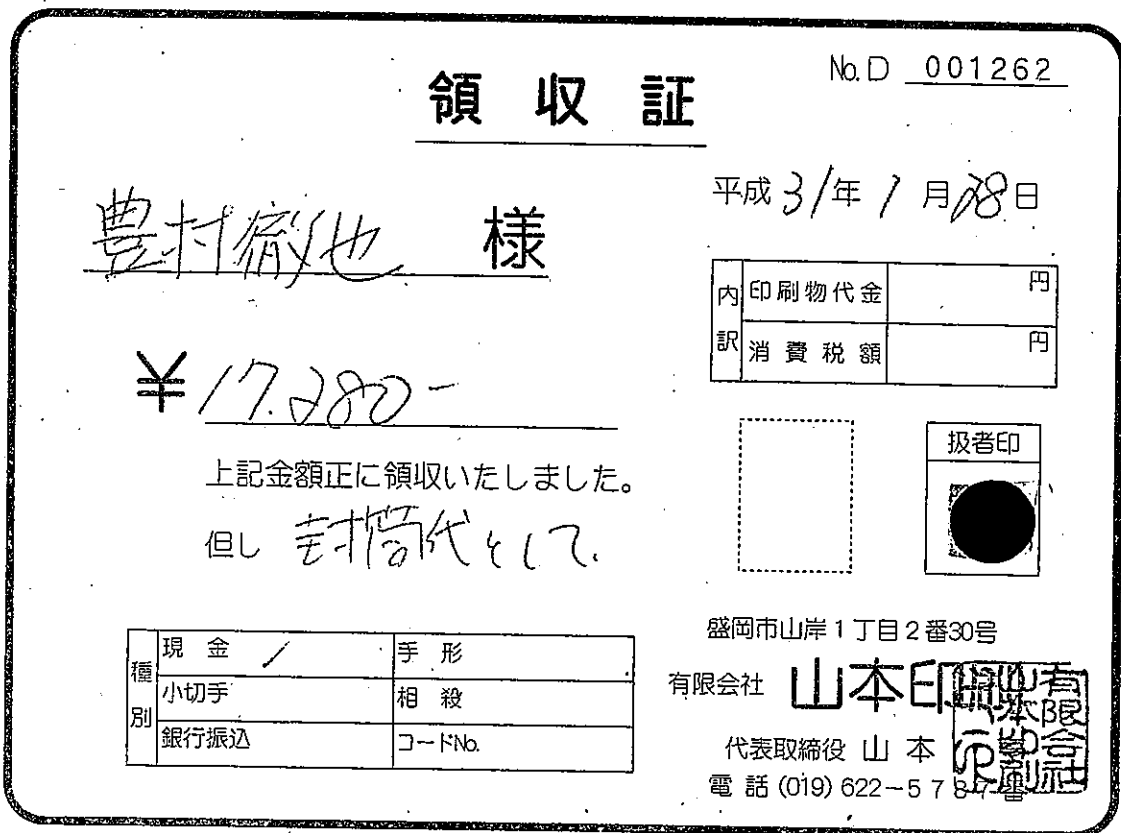 No. D 001262
領収証
平成31年1月28日
豊村徹也 様
内訳
印刷物代金 円
消費税額 円
¥17.280-
上記金額正に領収いたしました。
但し 封筒代として
扱者印
種別
現金 / 手形
小切手 相殺
銀行振込 コードNo.
盛岡市山岸1丁目2番30号
有限会社 山本印刷
代表取締役 山本
電話(019)622-5787番
有限会社山本印刷